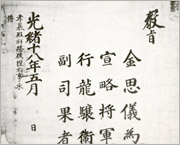 敎旨
金思儀爲
宣略將軍
行龍驤衛
副司果者
光緖十八年五月 日